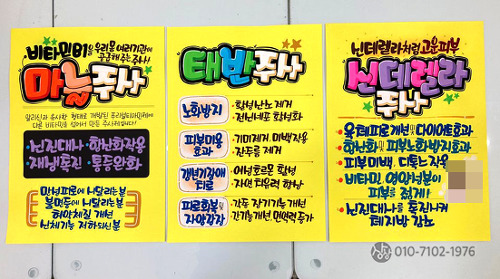 비타민B1을 우리몸 여러기관에
공급해주는 주사!
마늘주사
알리신과 유사한 형태로 개발된 푸르설티아민에
다른 비타민을 섞어서 만든 주사제입니다!
신진대사 · 항산화작용
재생촉진 · 통증완화
만성피로에 시달리는 분
불면증에 시달리는 분
허약체질 개선
신체기능 저하되신 분
태반주사
노화방지
· 활성산소 제거
· 전신세포 활성화
피부미용
효과
· 기미제거 미백작용
· 잔주름 제거
갱년기장애
치료
· 여성호르몬 활성
· 자연 치유력 향상
피로회복 및
자양강장
· 각종 장기기능 개선
· 간기능개선 면역력증가
신데렐라처럼 고운피부
신데렐라
주사
육체피로 개선 및 다이어트효과
항산화 및 피부노화방지효과
피부미백, 디톡스 작용
비타민, 영양성분이
피부를 젊게!
신진대사를 촉진시켜
체지방 감소
010-7102-1976